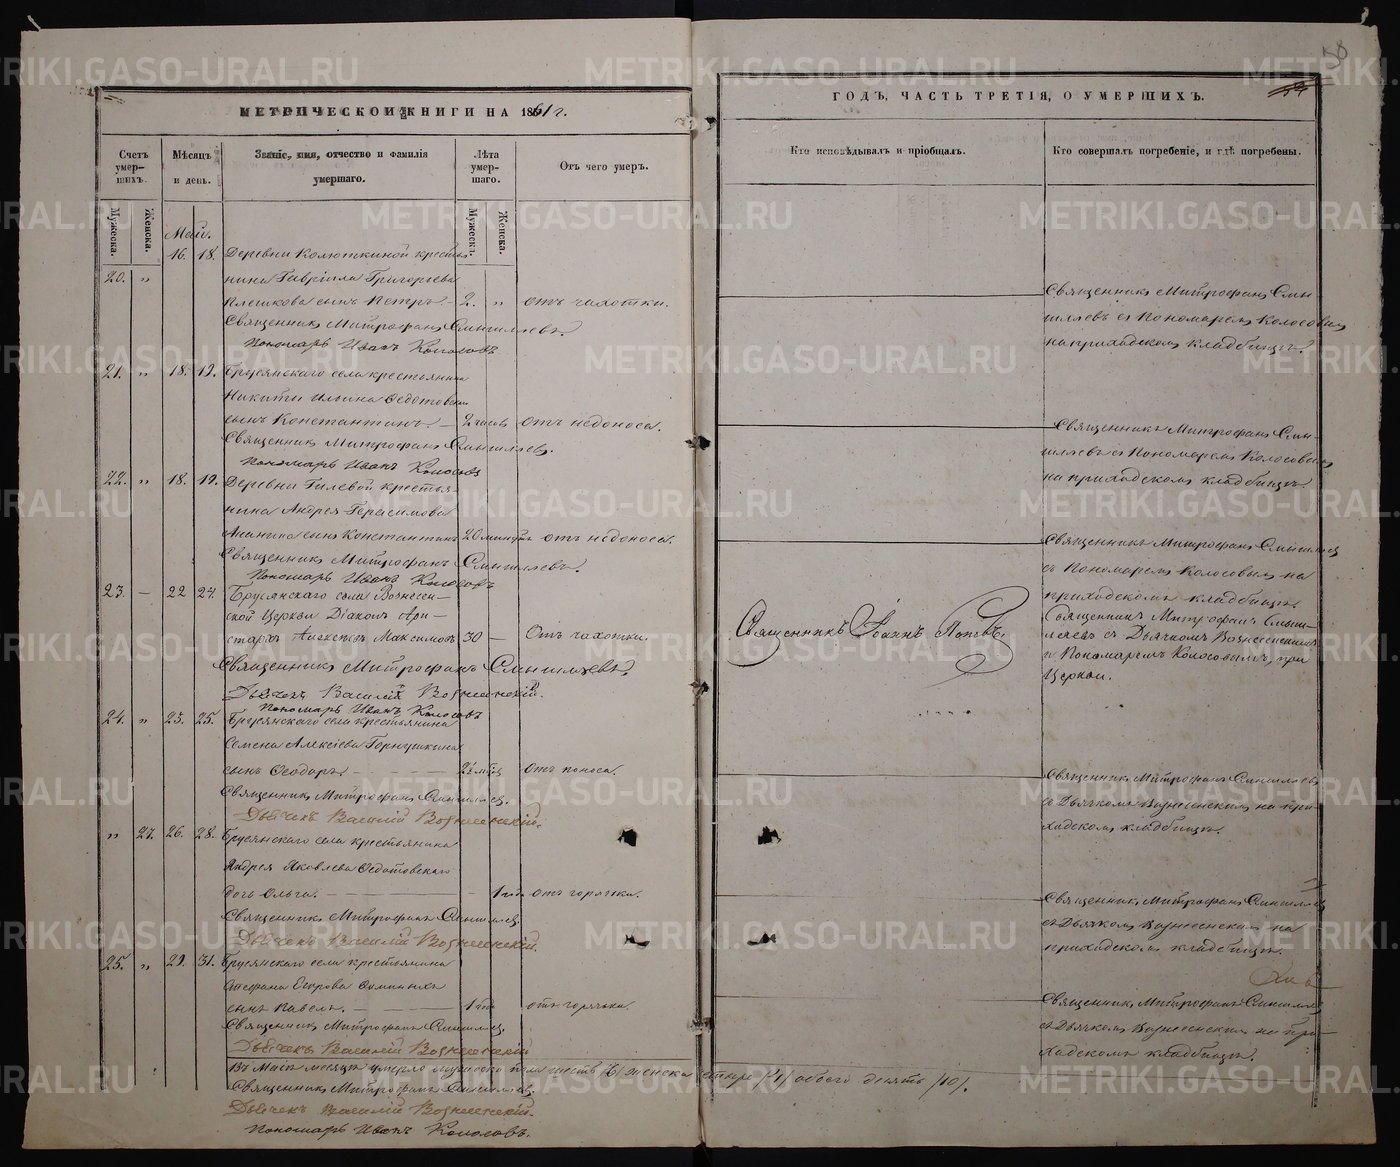 58
МЕТРИЧЕСКОЙ КНИГИ НА 1861 г.
ГОДЪ, ЧАСТЬ ТРЕТІЯ, О УМЕРШИХЪ.
Счетъ умер-шихъ.
Мѣсяцъ и день.
Званіе, имя, отчество и фамилія умершаго.
Лѣта умер-шаго.
Отъ чего умеръ.
Кто исповѣдывалъ и пріобщалъ.
Кто совершалъ погребеніе, и гдѣ погребены.
Мужеска. Женска.
Мужеска. Женска.
Май.
16. 18. Деревни Колюткиной крестья-
20. „ нина Гавріила Григорьева
Плешкова сынъ Петръ – 2. „ отъ чахотки.
Священникъ Митрофанъ Смышляевъ.
Пономарь Иванъ Колосовъ
Священникъ Митрофанъ Смы-
шляевъ съ Пономаремъ Колосовымъ
на приходскомъ кладбищѣ.
21. „ 18. 19. Брусянскаго села крестьянина
Никиты Ильина Ѳедотовскаго
сынъ Константинъ. – 2 часа отъ недоноса.
Священникъ Митрофанъ Смышляевъ.
Пономарь Иванъ Колосовъ
Священникъ Митрофанъ Смы-
шляевъ съ Пономаремъ Колосовымъ
на приходскомъ кладбищѣ.
22. „ 18. 19. Деревни Гилевой крестья-
нина Андрея Герасимова
Ананьина сынъ Константинъ 20 минутъ отъ недоноса.
Священникъ Митрофанъ Смышляевъ.
Пономарь Иванъ Колосовъ
Священникъ Митрофанъ Смышляевъ
съ Пономаремъ Колосовымъ на
приходскомъ кладбищѣ.
23. – 22 24. Брусянскаго села Вознесен-
ской Церкви Діаконъ Ари-
стархъ Алексѣевъ Максимовъ 30 – Отъ чахотки.
Священникъ Митрофанъ Смышляевъ.
Дьячекъ Василій Вознесенскій.
Пономарь Иванъ Колосовъ
Священникъ Іоаннъ Поповъ.
Священникъ Митрофанъ Смыш-
ляевъ съ Дьячкомъ Вознесенскимъ
и Пономаремъ Колосовымъ, при
Церкви.
24. „ 23. 25. Брусянскаго села крестьянина
Семена Алексіева Горнушкина
сынъ Ѳеодоръ. – отъ поноса.
Священникъ Митрофанъ Смышляевъ.
Дьячекъ Василій Вознесенскій.
Священникъ Митрофанъ Смышляевъ
съ Дьячкомъ Вознесенскимъ на при-
ходскомъ кладбищѣ.
„ 27. 26. 28. Брусянскаго села крестьянина
Андрея Яковлева Ѳедотовскаго
дочь Ольга. – 1 год. отъ горячки.
Священникъ Митрофанъ Смышляевъ
Дьячекъ Василій Вознесенскій.
Священникъ Митрофанъ Смышляевъ
съ Дьячкомъ Вознесенскимъ на
приходскомъ кладбищѣ.
25. „ 29. 31. Брусянскаго села крестьянина
Стефана
сынъ Павелъ. – отъ горячки
Священникъ Митрофанъ Смышляевъ.
Дьячекъ Василій Вознесенскій
Священникъ Митрофанъ Смышляевъ
съ Дьячкомъ Вознесенскимъ на при-
ходскомъ кладбищѣ.
Въ Маѣ мѣсяцѣ умерло мужеска пола шесть /6/ женска четыре /4/ обоего десять /10/.
Священникъ Митрофанъ Смышляевъ.
Дьячекъ Василій Вознесенскій.
Пономарь Иванъ Колосовъ.
METRIKI.GASO-URAL.RU